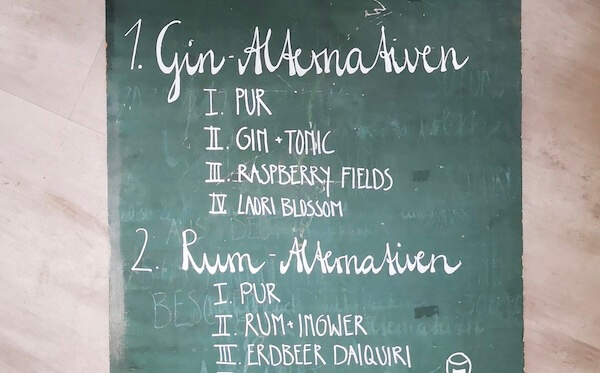 1. Gin-Alternativen
I. PUR
II. GIN + TONIC
III. RASPBERRY FIELDS
IV LAORI BLOSSOM
2. Rum-Alternativen
I. PUR
II. RUM + INGWER
III. ERDBEER DAIQUIRI